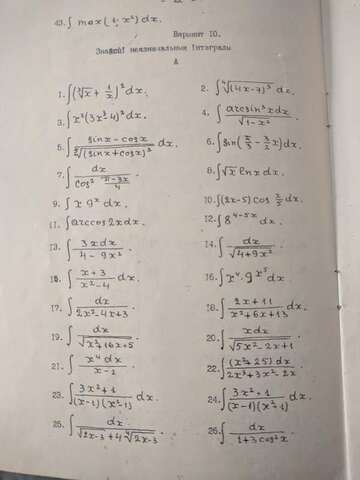 43. ∫ max(1, x²) dx.
Вариант 10.
Знайти неозначенные Інтегралы
A
1. ∫(∛x + 1/x)² dx.
2. ∫ ⁴√(4x-7)³ dx.
3. ∫ x²(3x³-4)² dx.
4. ∫ arcsin³x dx / √(1-x²).
5. ∫ (sinx - cosx) / ⁵√(sinx + cosx)³ dx.
6. ∫ sin(π/3 - 3/2 x) dx.
7. ∫ dx / cos² (π-3x)/4.
8. ∫ √x ln x dx.
9. ∫ x 9ˣ dx.
10. ∫(2x-5) cos x/2 dx.
11. ∫ arccos 2x dx.
12. ∫ 8⁴⁻⁵ˣ dx.
13. ∫ 3x dx / (4-9x²).
14. ∫ dx / √(4+9x²).
15. ∫ (x+3)/(x²-4) dx.
16. ∫ x⁴·9^(x⁵) dx.
17. ∫ dx / (2x²-4x+3).
18. ∫ (2x+11)/(x²+6x+13) dx.
19. ∫ dx / √(x²+16x+5).
20. ∫ x dx / √(5x²-2x+1).
21. ∫ x⁴ dx / (x-2).
22. ∫ (x³+25) dx / (2x³+3x²-2x).
23. ∫ (3x²+1) / (x-1)(x²-1) dx.
24. ∫ (3x²+1) / (x-1)(x²+1) dx.
25. ∫ dx / (√(2x-3) + 4 ⁴√(2x-3)).
26. ∫ dx / (1+3cos²x).